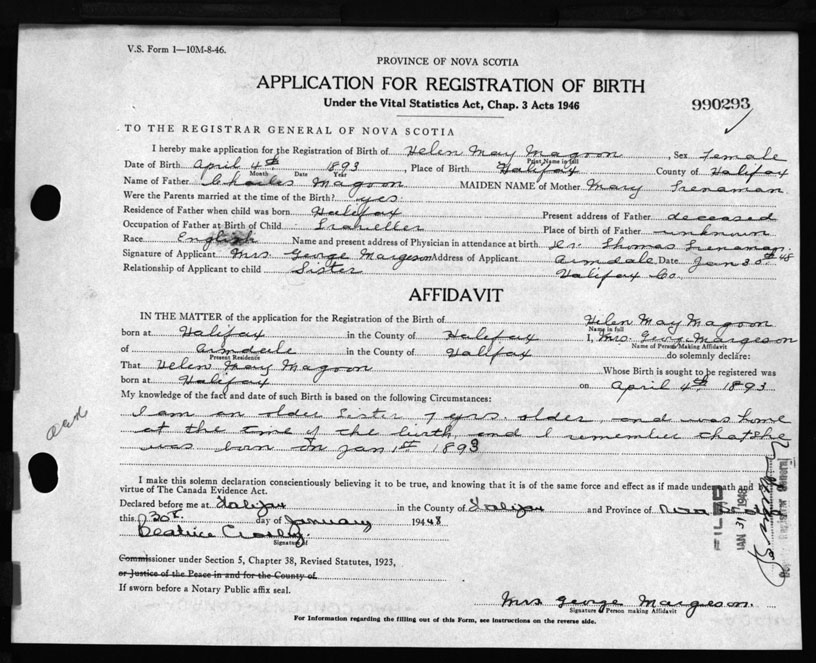 V.S. Form 1—10M-8-46.
PROVINCE OF NOVA SCOTIA
APPLICATION FOR REGISTRATION OF BIRTH
Under the Vital Statistics Act, Chap. 3 Acts 1946
990293
TO THE REGISTRAR GENERAL OF NOVA SCOTIA
I hereby make application for the Registration of Birth of Helen May Magoon, Sex Female
Print Name in full
Date of Birth April 4th 1893, Place of Birth Halifax County of Halifax
Month Date Year
Name of Father Charles Magoon MAIDEN NAME of Mother Mary Trenaman
Were the Parents married at the time of the Birth? yes
Residence of Father when child was born Halifax Present address of Father deceased
Occupation of Father at Birth of Child Traveller Place of birth of Father unknown
Race English Name and present address of Physician in attendance at birth Dr. Thomas Trenaman
Signature of Applicant Mrs George Margeson Address of Applicant Armdale Date Jan 30th 48
Relationship of Applicant to child Sister Halifax Co.
AFFIDAVIT
IN THE MATTER of the application for the Registration of the Birth of Helen May Magoon
Name in full
born at Halifax in the County of Halifax I, Mrs. George Margeson
Name of Person Making Affidavit
of Armdale in the County of Halifax do solemnly declare:
Present Residence
That Helen May Magoon Whose Birth is sought to be registered was
born at Halifax on April 4th 1893
My knowledge of the fact and date of such Birth is based on the following Circumstances:
I am an older Sister 7 yrs. older, and was home
at the time of the birth, and I remember that she
was born on Jan 1st 1893
I make this solemn declaration conscientiously believing it to be true, and knowing that it is of the same force and effect as if made under oath and by
virtue of The Canada Evidence Act.
Declared before me at Halifax in the County of Halifax and Province of Nova Scotia
this 30th day of January 1948
Beatrice Crosby
Signature of
Commissioner under Section 5, Chapter 38, Revised Statutes, 1923,
or Justice of the Peace in and for the County of
If sworn before a Notary Public affix seal.
Mrs George Margeson
Signature Person making Affidavit
For Information regarding the filling out of this Form, see instructions on the reverse side.
FILED
JAN 31 1948